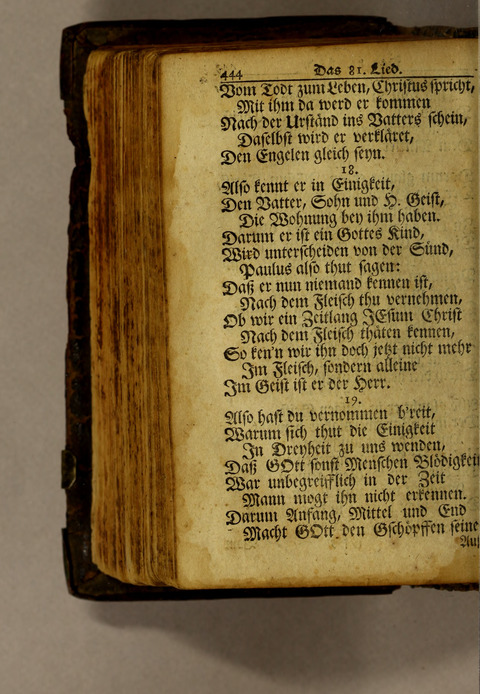 444 Das 81. Lied.
Vom Todt zum Leben, Christus spricht,
Mit ihm da werd er kommen
Nach der Urständ ins Vatters schein,
Daselbst wird er verkläret,
Den Engelen gleich seyn.
18.
Also kennt er in Einigkeit,
Den Vatter, Sohn und H. Geist,
Die Wohnung bey ihm haben.
Darum er ist ein Gottes Kind,
Wird unterscheiden von der Sünd,
Paulus also thut sagen:
Daß er nun niemand kennen ist,
Nach dem Fleisch thu vernehmen,
Ob wir ein Zeitlang JEsum Christ
Nach dem Fleisch thäten kennen,
So ken'n wir ihn doch jetzt nicht mehr
Im Fleisch, sondern alleine
Im Geist ist er der Herr.
19.
Also hast du vernommen b'reit,
Warum sich thut die Einigkeit
In Dreyheit zu uns wenden,
Daß GOtt sonst Menschen Blödigkeit
War unbegreifflich in der Zeit
Mann mogt ihn nicht erkennen.
Darum Anfang, Mittel und End
Macht GOtt den Gschöpffen seine